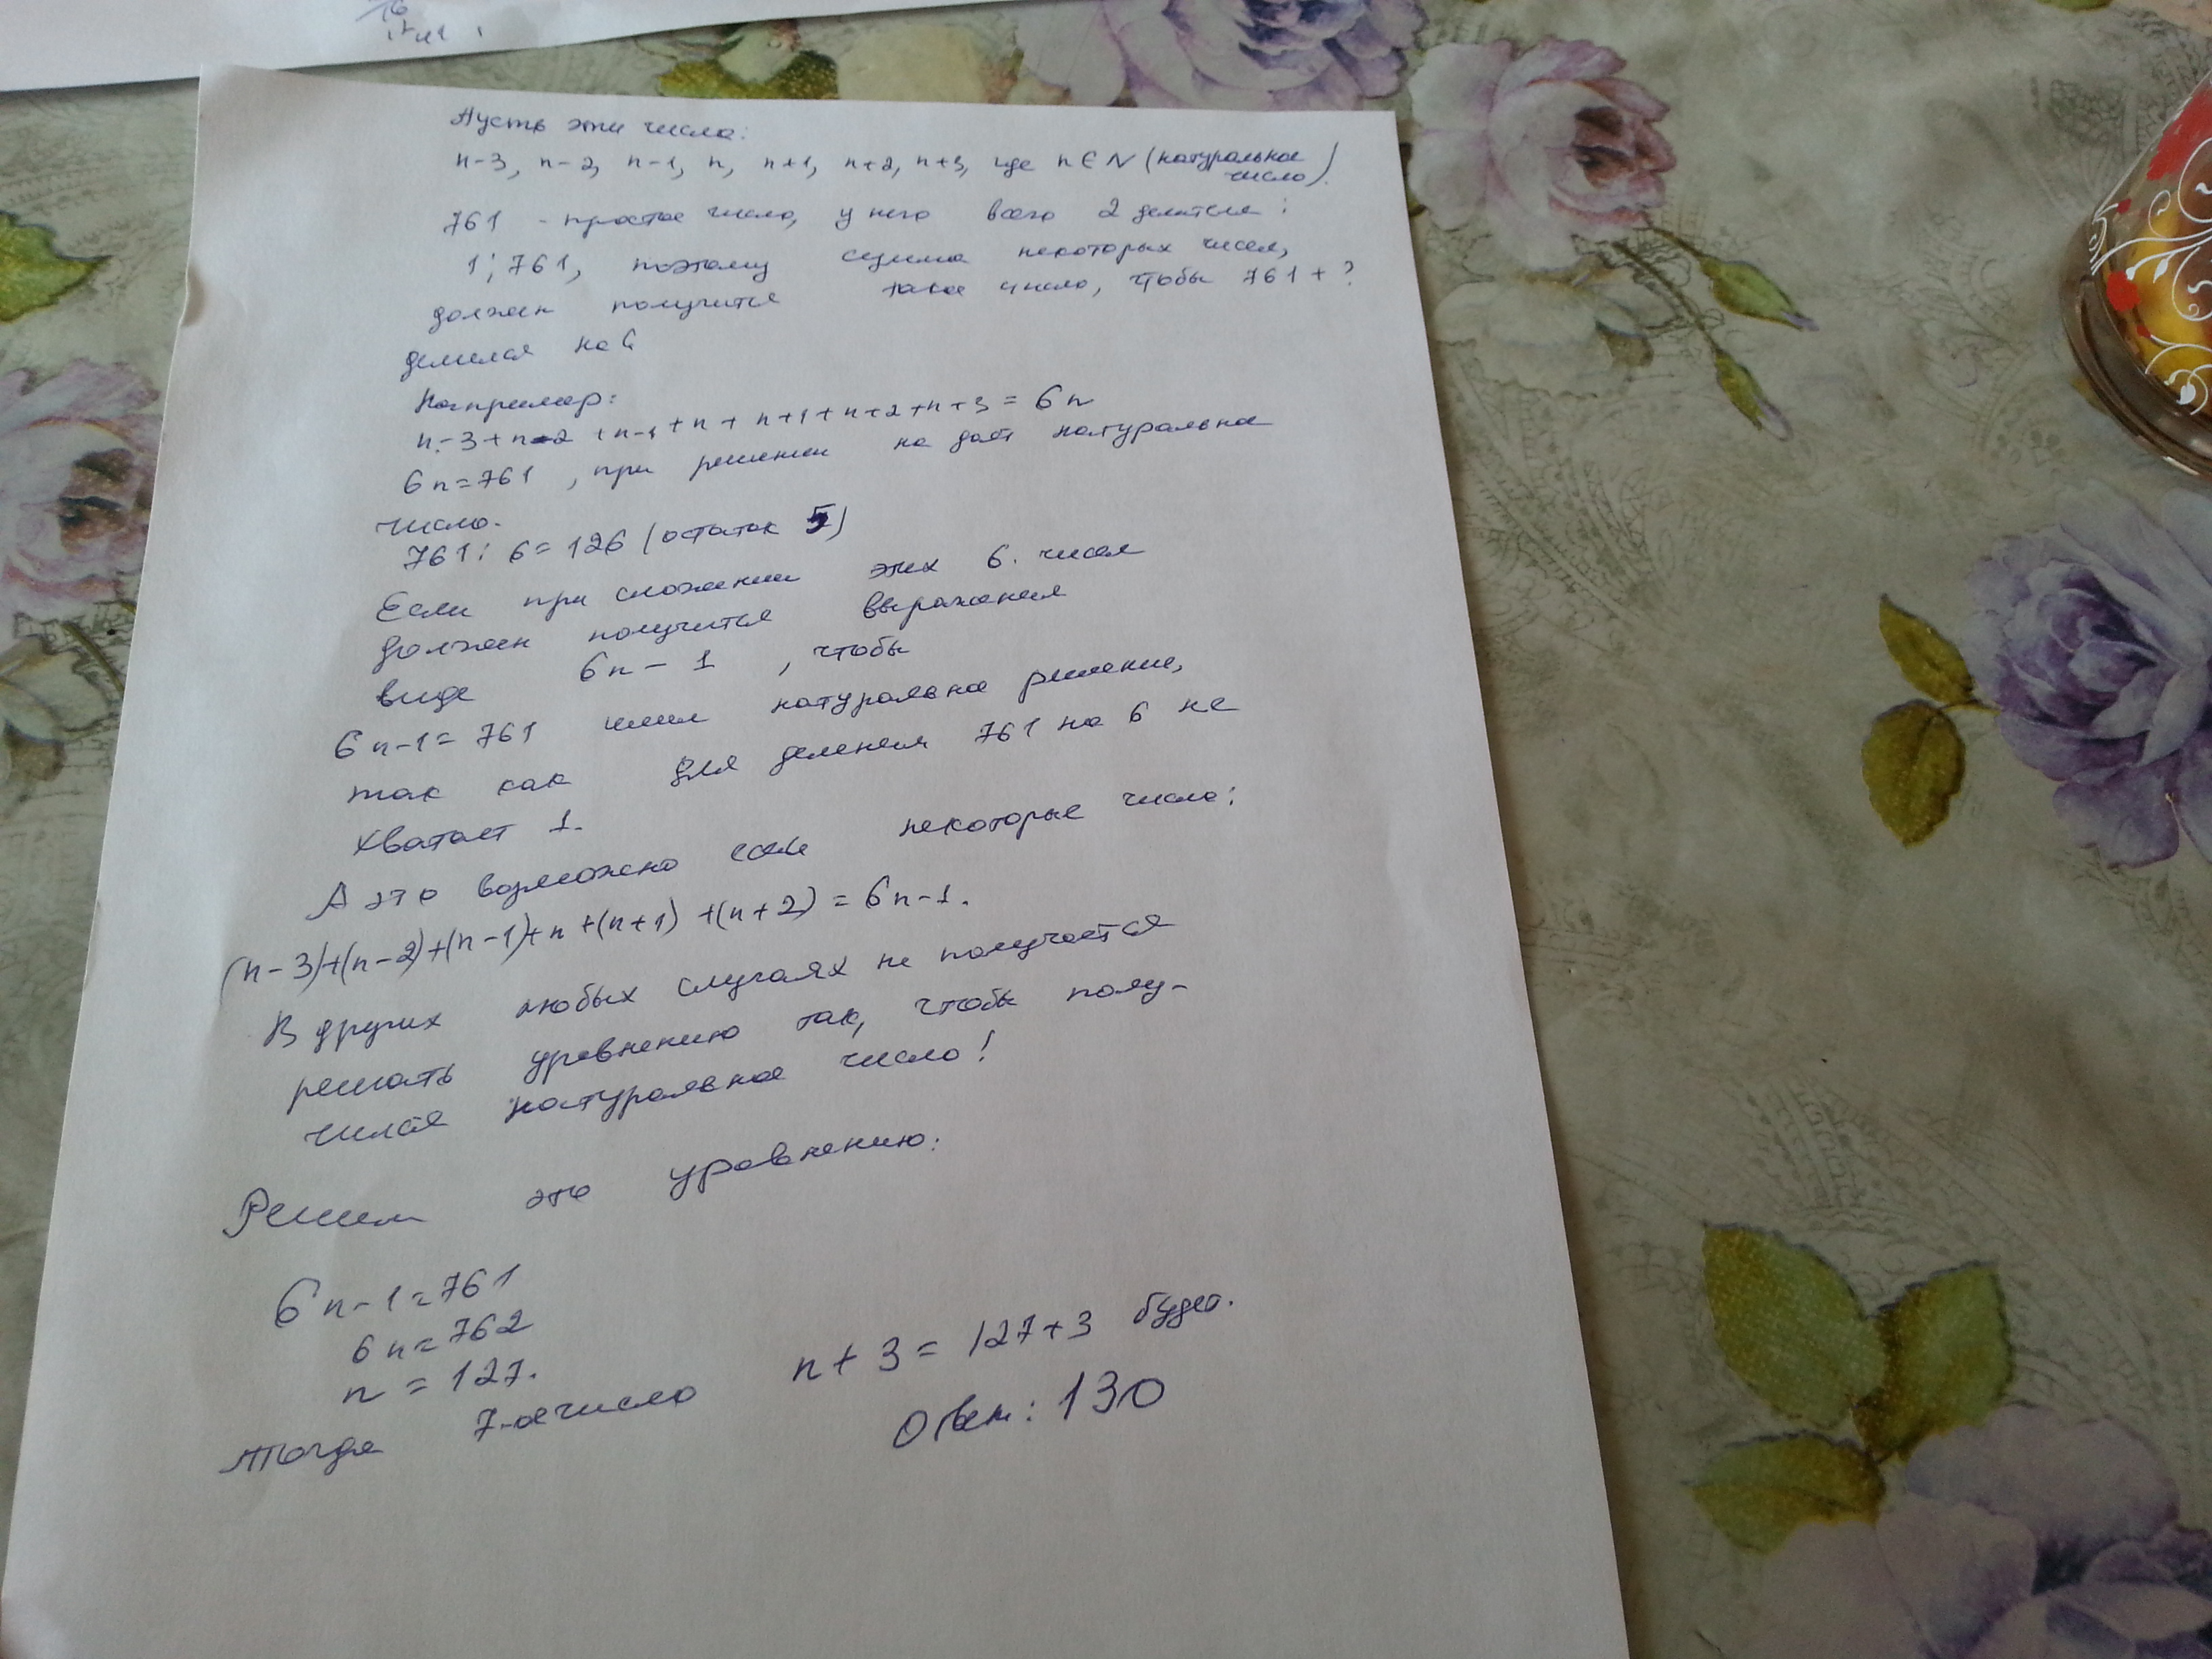 Пусть эти числа:
n-3, n-2, n-1, n, n+1, n+2, n+3, где n∈N (натуральное
число).
761 - простое число, у него всего 2 делителя:
1; 761, поэтому сумма некоторых чисел,
должен получится такое число, чтобы 761+?
делился на 6
Например:
n-3+n-2+n-1+n+n+1+n+2+n+3=6n
6n=761, при решении не даёт натуральное
число.
761:6=126 (остаток 5)
Если при сложении этих 6 чисел
должен получится выражения
виде 6n-1, чтобы
6n-1=761 имел натуральное решение,
так как для деления 761 на 6 не
хватает 1.
А это возможно если некоторые числа:
(n-3)+(n-2)+(n-1)+n+(n+1)+(n+2)=6n-1.
В других любых случаях не получается
решать уравнению так, чтобы полу-
чился натуральное число!
Решим это уравнению:
6n-1=761
6n=762
n=127.
Тогда 7-ое число n+3=127+3 будет.
Ответ: 130